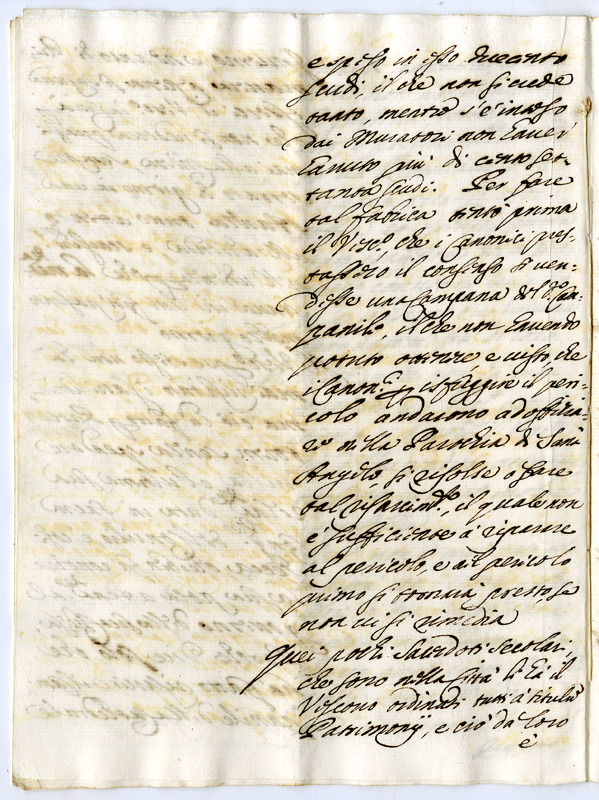 e speso in esso ducento
scudi, il che non si crede
tanto, mentre s'è inteso
dai Muratori non haver
havuto più di cento set-
tanta scudi. Per fare
tal fabrica tentò prima
il Vesc.o, che i Canonici pres-
tassero il consenso si ven-
desse una campana del d.o Cam-
panile, il che non havendo
potuto ottenere, e visto, che
i Canon.ci p isfuggire il peri-
colo andarono ad offitia-
re nella Parochia di Sant
Angelo, si risolse a fare
tal risarcim.to, il quale non
è sufficiente a riparare
al pericolo, e al pericolo
primo si tornarà presto, se
non vi si rimedia
Quei pochi sacerdoti secolari,
che sono nella Città li hà il
Vescovo ordinati tutti a titulu
Patrimonij, e ciò da loro
è